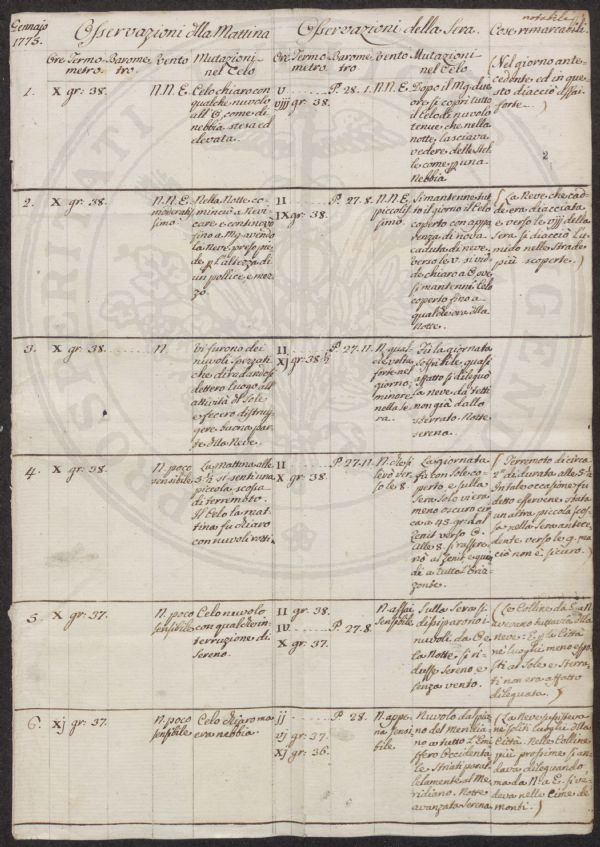 Gennajo 1775.
Osservazioni della Mattina
Osservazioni della Sera.
notabile
Cose rimarcabili.
Ore Termometro. Barometro. Vento Mutazioni nel Celo
Ore Termometro. Barometro. Vento Mutazioni nel Celo
1. X gr: 38.
N.N.E.
Celo chiaro con
qualche nuvolo
come di
nebbia stesa ed
elevata.
V
viij gr: 38.
P. 28. 1.
N.N.E.
Dopo il
si coprì tutto
il Celo di nuvolo
tenue, che nella
notte, lasciava
vedere delle Stelle
come una
Nebbia
(Nel giorno antecedente
ed in questo
diacciò assai
forte.)
2
2. X gr: 38.
N.N.E.
moderatissimo
Nella Notte cominciò
a Nevicare
e continovò
fino a
la Neve prese piede
l'altezza di
un pollice e mezzo.
II
IX gr: 38.
P. 27. 8.
N.N.E.
piccolissimo
Si mantenne tutto
il giorno il Celo
coperto con apparenza
di nova
caduta di neve,
verso le V. si vide
chiaro a
si mantenne Celo
coperto fino a
qualche ora della
Notte.
(La Neve che cadde
era diacciata,
e verso le viij della
Sera si diacciò l'umido
nelle Strade
più scoperte.)
3. X gr: 38.
N.
Vi furono dei
nuvoli spezzati
che diradandosi
dettero luogo all'
attività del Sole
e fecero distruggere
buona parte
della Neve.
II
XI gr: 38 ½
P. 27. 11.
N. qualche volta
forte nel
giorno,
minore
nella Sera.
Fu la giornata
soffribile, quasi
affatto si dileguò
la neve da tetti
non già dallo
sterrato. Notte
serena.
4. X gr: 38.
N. poco
sensibile
La mattina alle
5. ½ si sentì una
piccola scossa
di terremoto.
Il Celo la mattina
fu chiaro
con nuvoli rotti
II
X gr: 38.
P. 27. 11.
N. che si
levò verso
le 8.
La giornata
fu con Sole coperto,
e sulla
Sera solo vi era
meno oscuro circa
a 45. gr. dal
Zenit verso
alle 8. si rasserenò
al Zenit e quindi
a tutto l'Orizzonte.
(Terremoto di circa
2" di durata alle 5. ½
In tale occasione fu
detto esservene stata
un'altra piccola scossa
nella Sera antecedente
verso le 9. ma
ciò non è sicuro.)
5. X gr: 37.
N. poco
sensibile
Celo nuvolo
con qualche interruzione
di
Sereno.
II gr: 38.
IV
X gr: 37.
P. 27. 8.
N. assai
Sensibile
Sulla Sera si
dissiparono i
nuvoli, da
la Notte, si ridusse
Sereno e
senza vento.
(Le Colline da
avevano tuttavia della
neve. E la Città
ne' luoghi meno esposti
al Sole e Sterrati
non era affatto
dileguata.)
6. Xj gr: 37.
N. poco
sensibile
Celo chiaro ma
era nebbia
jj
vj gr: 37.
xj gr: 36.
P. 28.
N. appena
sensibile
Nuvolo dal piano
del Meridiano
a tutto l'Emisfero
Occidentale
Striati parallelamente
al Meridiano.
Notte
avanzata Serena
(La Neve sussisteva
ne' soliti luoghi della
Città. Nelle Colline
più prossime si andava
dileguando
ma da N. a E. si vedeva
nelle Cime de'
monti.)